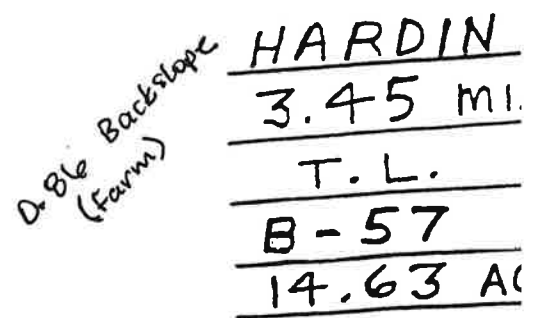 0.86 Backslope
(Farm)
HARDIN
3.45 MI.
T. L.
B-57
14.63 AC